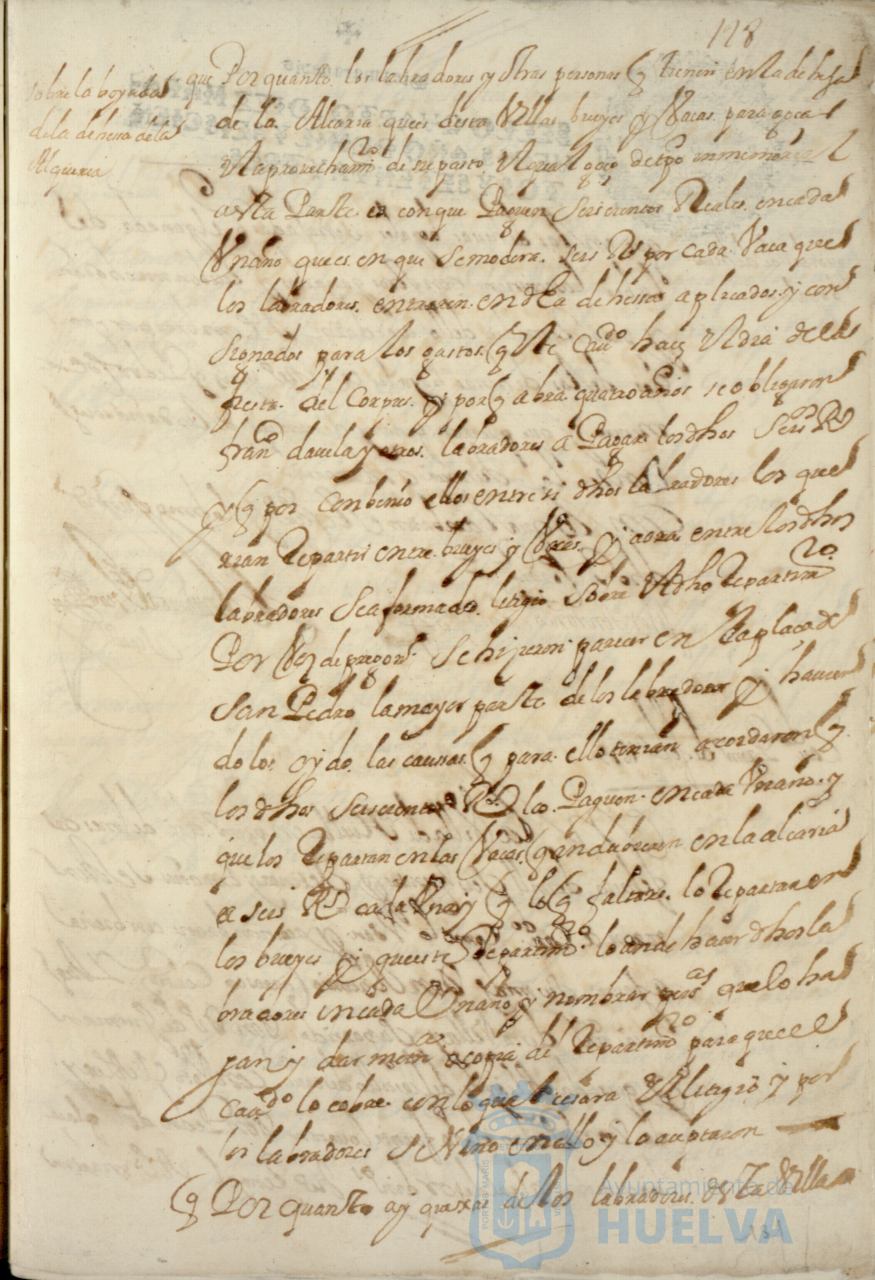 118
sobre la boyada
de la dehesa de la
Alqueria
que Por quanto los labradores y otras personas q tienen en la dehesa
de la Alcaria que es desta Villa bueyes y Vacas para goçar
el aprovechamito de su pasto
a esta Parte con que Paguen seiscientos Reales en cada
Un año que es en que se modera seis Rs por cada Vaca que
los labradores entraren en dha dehessa aplicados y con
signados para los gastos q este cavdo haçe el dia de la
fiesta del Corpus y porq abra quatro años se obligaron
franco davila y otros labradores a Pagar los dhos seisos Rs
y q por conbenio ellos entre si dhos labradores los que
rian Repartir entre bueyes y Vacas y aora entre los dhos
labradores se a formado letigio sobre el dho Repartimto
Por Voz de pregonr se hizieron pareçer en la plaça de
San Pedro la mayor parte de los labradores y haviendo
dolos oydo las caussas q para ello tenian acordaron q
los dhos seiscientos Rs los Paguen en cada Un año y
que los Repartan en las Vacas q andubieren en la alcaria
a seis Rs cada Una y lo q faltare lo Repartan en
los bueyes y que este Repartimto lo an de haçer dhos la
bradores en cada Un año y nombrar persas que lo ha
gan y dar memra o copia del Repartimto para que el
cavdo lo cobre con lo que çesara el letigio y por
los labradores se Vino en ello y lo aceptaron
q Por quanto ay quexas de los labradores desta Villa
Ayuntamiento de
HUELVA
PORTUS MARIS